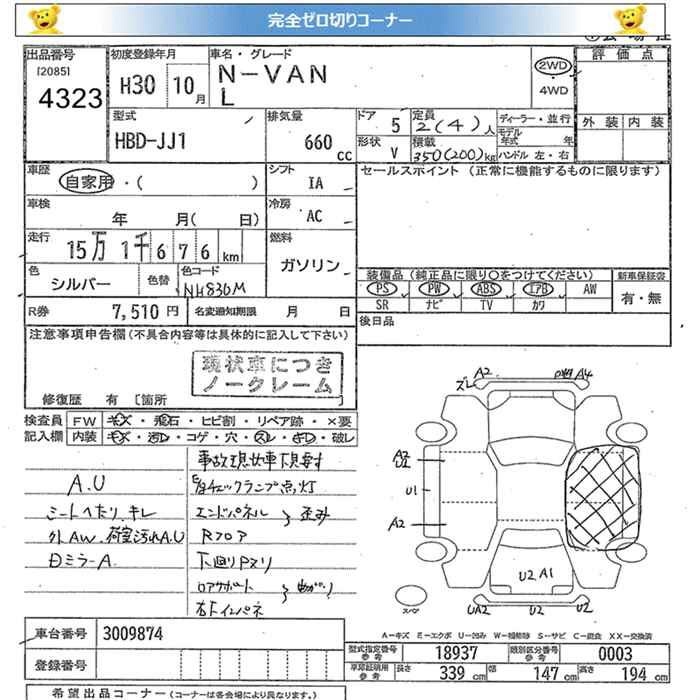 完全ゼロ切りコーナー
出品番号
[2085]
4323
初度登録年月
H30 10月
車名・グレード
N-VAN
L
2WD
4WD
評価点
外装 内装
型式
HBD-JJ1
排気量
660 cc
ドア 5
形状 V
定員 2(4)人
積載 350(200)kg
ディーラー・並行
モデル年式 年
ハンドル 左・右
車歴
自家用・( )
シフト
IA
セールスポイント(正常に機能するものに限ります)
車検
年 月( 日)
冷房
AC
走行
15万 1千 6 7 6 km
燃料
ガソリン
色
シルバー
色替
色コード
NH830M
装備品(純正品に限り○をつけてください)
PS PW ABS エアB AW
SR ナビ TV カワ
新車保証書
有・無
R券 7,510 円
名変通知期限 月 日
後日品
注意事項申告欄(不具合内容等は具体的に記入して下さい)
現状車につき
ノークレーム
修復歴 有 [箇所
検査員記入欄
FW キズ・飛石・ヒビ割・リペア跡・×要
内装 キズ・汚レ・コゲ・穴・スレ・キレ・破レ
A.U
シートヘタリ.キレ
外AW.荷室汚れA.U
Dミラ-A
事故現状車下見要す
E/gチェックランプ点灯
エンドパネル 歪み
Rフロア
下廻りPスリ
ロアサポート 曲がり
右Fインパネ
A2
ズレ
A4
A2
U2
U1
A2
U2 A1
UA2
U2
U2
スペヤ
A-キズ E-エクボ U-凹み W-補修跡 S-サビ C-腐食 XX-交換済
車台番号 3009874
登録番号
型式指定番号 参考 18937
類別区分番号 参考 0003
車庫証明用 参考 長さ 339 cm 幅 147 cm 高さ 194 cm
希望出品コーナー(コーナーは各会場により異なります。)